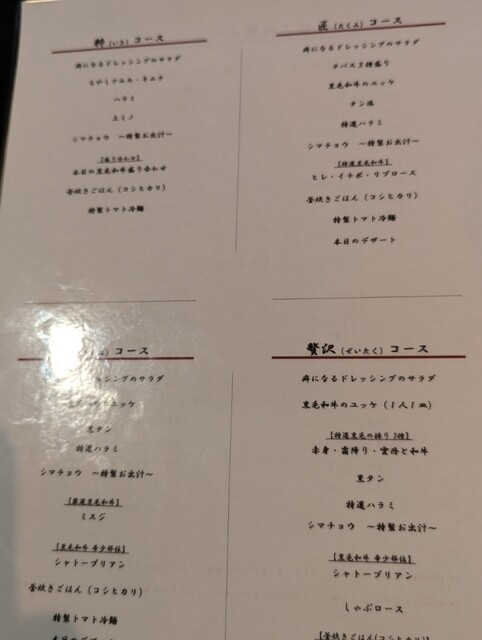 粋(いき)コース
癖になるドレッシングのサラダ
もやしナムル・キムチ
ハラミ
上ミノ
シマチョウ ～特製お出汁～
【盛り合わせ】
本日の黒毛和牛盛り合わせ
釜炊きごはん(コシヒカリ)
特製トマト冷麺
匠(たくみ)コース
癖になるドレッシングのサラダ
タパス3種盛り
黒毛和牛のユッケ
タン塩
特選ハラミ
シマチョウ ～特製お出汁～
【特選黒毛和牛】
ヒレ・イチボ・リブロース
釜炊きごはん(コシヒカリ)
特製トマト冷麺
本日のデザート
コース
ドレッシングのサラダ
ユッケ
黒タン
特選ハラミ
シマチョウ ～特製お出汁～
【厳選黒毛和牛】
ミスジ
【黒毛和牛 希少部位】
シャトーブリアン
釜炊きごはん(コシヒカリ)
特製トマト冷麺
本日のデザート
贅沢(ぜいたく)コース
癖になるドレッシングのサラダ
黒毛和牛のユッケ(1人1皿)
【特選黒毛の握り 3種】
赤身・霜降り・雲丹と和牛
黒タン
特選ハラミ
シマチョウ ～特製お出汁～
【黒毛和牛 希少部位】
シャトーブリアン
しゃぶロース
【釜炊きごはん(コシヒカリ)】